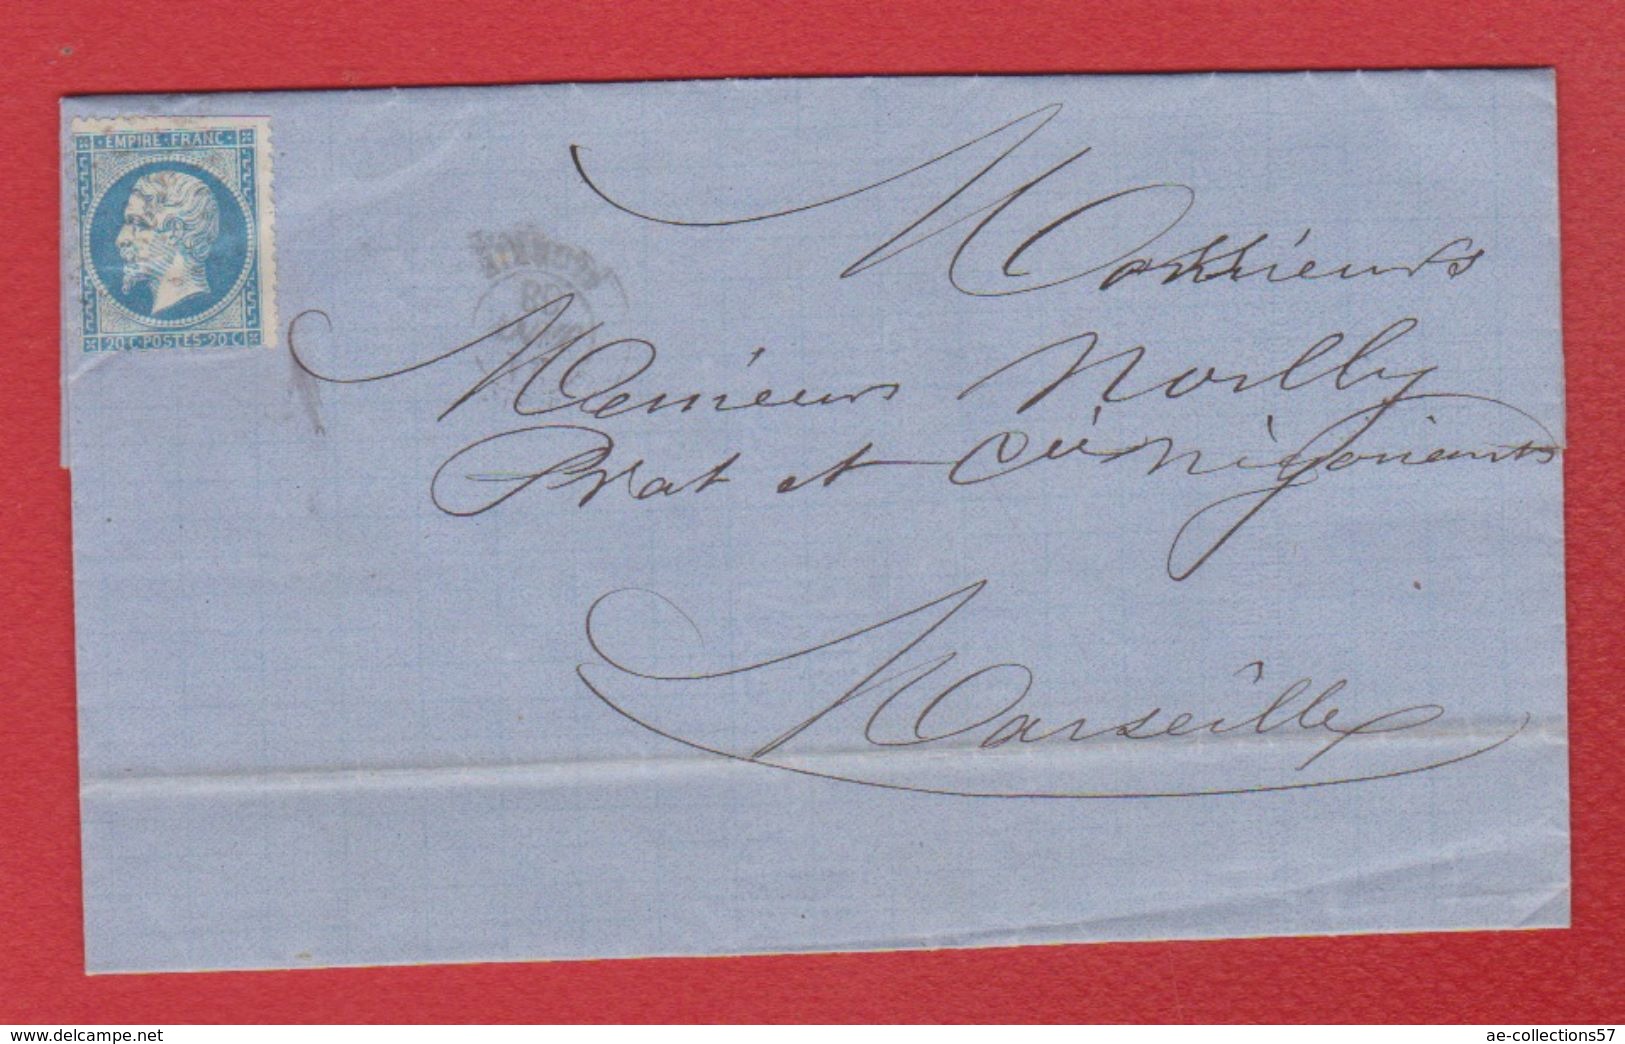 EMPIRE·FRANC
20 C·POSTES·20 C
Messieurs
Messieurs Noilly
Prat et Cie Négociants
Marseille
www.delcampe.net
ae-collections57